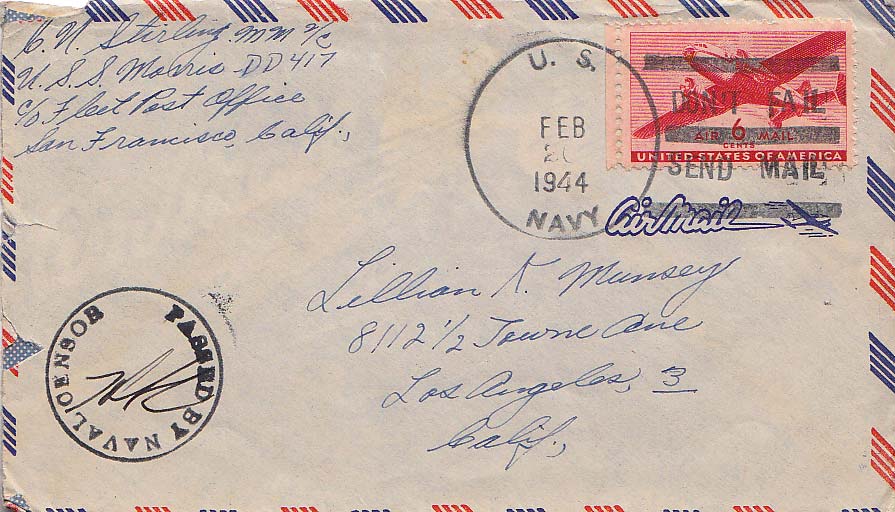 C. N. Stirling. M M 2/C
U. S. S. Morris DD 417
C/o Fleet Post Office
San Francisco, Calif.,
U. S.
FEB
1944
NAVY
DON'T FAIL
SEND MAIL
AIR 6 MAIL
CENTS
UNITED STATES OF AMERICA
Air Mail
Lillian K. Munsey
8112 1/2 Towne Ave
Los Angeles, 3
Calif.,
PASSED BY NAVAL CENSOR